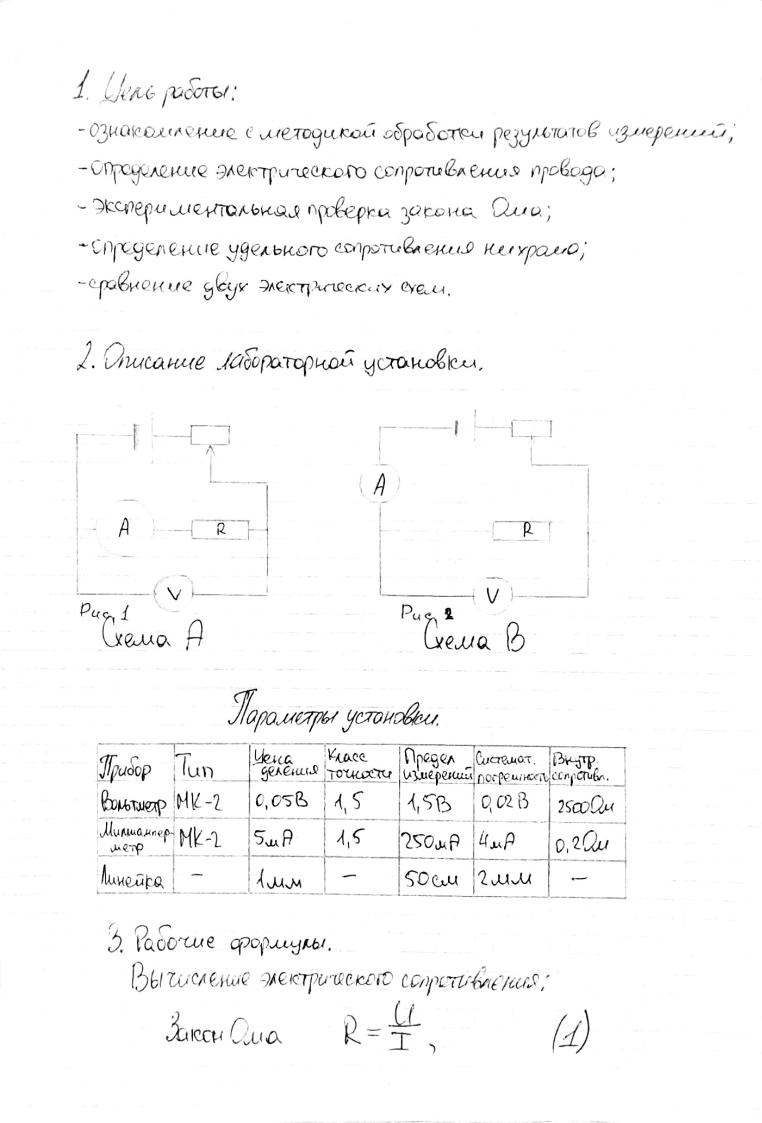 1. Цель работы:
-ознакомление с методикой обработки результатов измерений;
-определение электрического сопротивления провода;
- экспериментальная проверка закона Ома;
-определение удельного сопротивления нихрома;
-сравнение двух электрических схем.
2. Описание лабораторной установки.
A
R
V
Рис. 1
Схема А
A
R
V
Рис. 2
Схема В
Параметры установки.
Прибор Тип Цена деления Класс точности Предел измерений Системат. погрешность Внутр. сопротивл.
Вольтметр МК-2 0,05В 1,5 1,5В 0,02В 2500Ом
Миллиампер-метр МК-2 5мА 1,5 250мА 4мА 0,2Ом
Линейка – 1мм – 50см 2мм –
3. Рабочие формулы.
Вычисление электрического сопротивления:
Закон Ома R = U/I , (1)